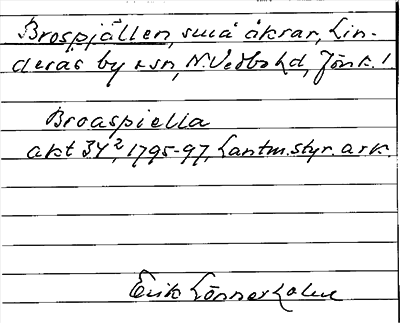 Brospjällen, små åkrar, Lin-
deras by o sn, N. Vedbo hd, Jönk. l.
Broaspiella
akt 34², 1795-97, Lantm.styr. ark.
Erik Lönnerholm